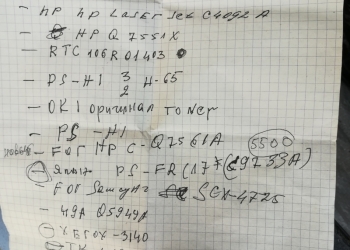 - HP HP LaserJet C4092A
- HP Q7551X
- RTC 106R01403
- PS-H1 3/2 H-65
- OKI оригинал Toner
- PS-H1
- FOR HP C-Q7561A 5500
PS-FR(17*(C9733A)
- FOR Samsung SCX-4725
- 49A Q5949A
- XEROX-3140